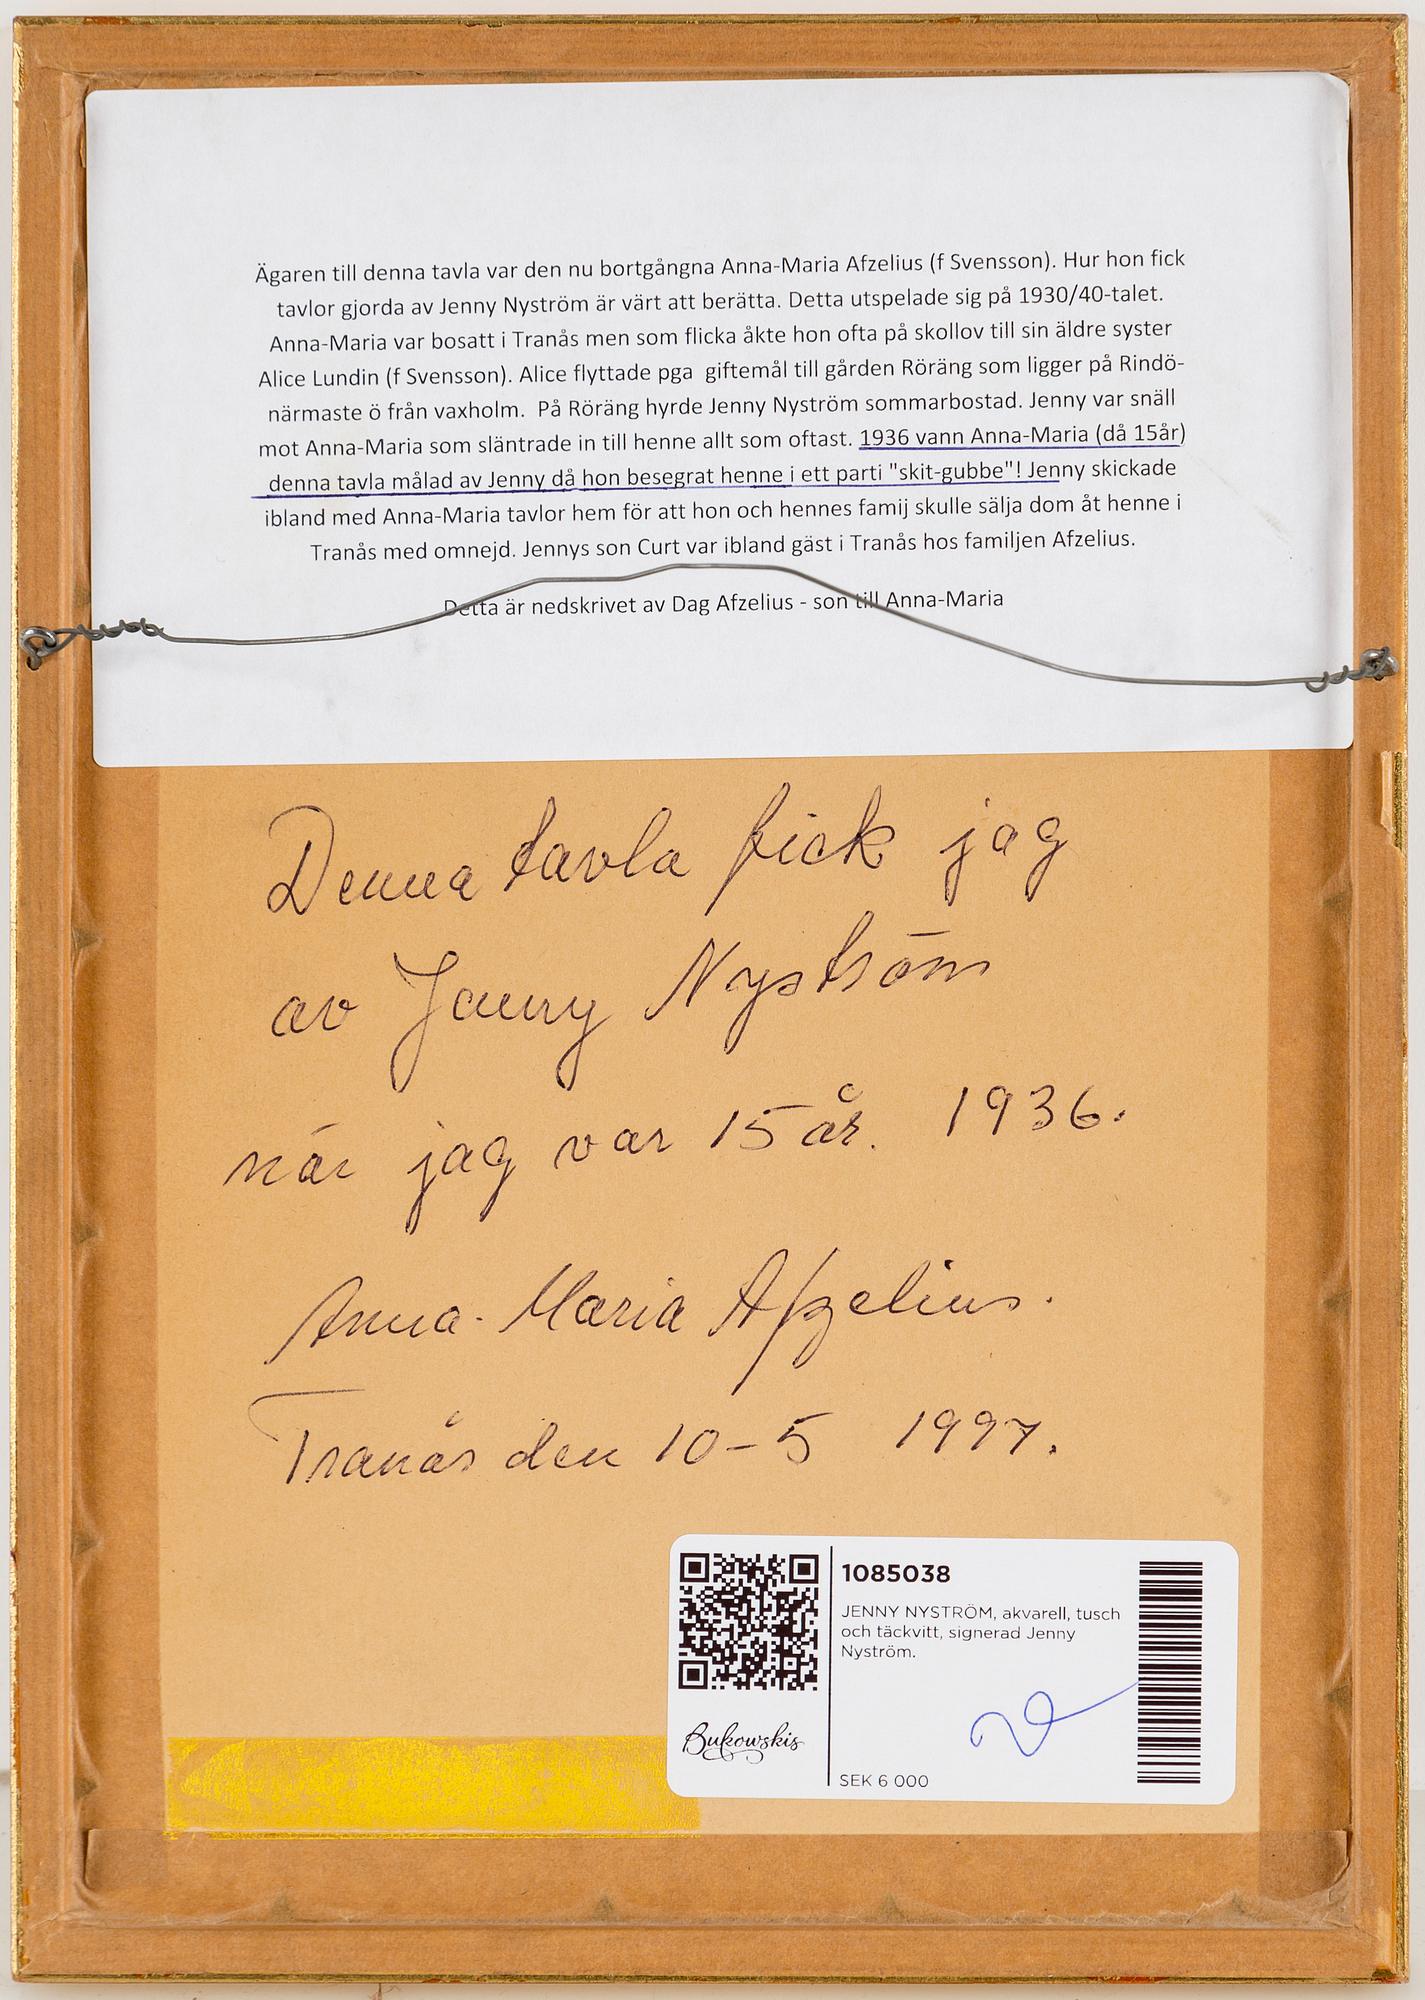 Ägaren till denna tavla var den nu bortgångna Anna-Maria Afzelius (f Svensson). Hur hon fick
tavlor gjorda av Jenny Nyström är värt att berätta. Detta utspelade sig på 1930/40-talet.
Anna-Maria var bosatt i Tranås men som flicka åkte hon ofta på skollov till sin äldre syster
Alice Lundin (f Svensson). Alice flyttade pga giftemål till gården Röräng som ligger på Rindö-
närmaste ö från vaxholm. På Röräng hyrde Jenny Nyström sommarbostad. Jenny var snäll
mot Anna-Maria som släntrade in till henne allt som oftast. 1936 vann Anna-Maria (då 15år)
denna tavla målad av Jenny då hon besegrat henne i ett parti "skit-gubbe"! Jenny skickade
ibland med Anna-Maria tavlor hem för att hon och hennes famij skulle sälja dom åt henne i
Tranås med omnejd. Jennys son Curt var ibland gäst i Tranås hos familjen Afzelius.
Detta är nedskrivet av Dag Afzelius - son till Anna-Maria
Denna tavla fick jag
av Jenny Nyström
när jag var 15 år. 1936.
Anna-Maria Afzelius.
Tranås den 10-5 1997.
1085038
JENNY NYSTRÖM, akvarell, tusch
och täckvitt, signerad Jenny
Nyström.
Bukowskis
SEK 6 000